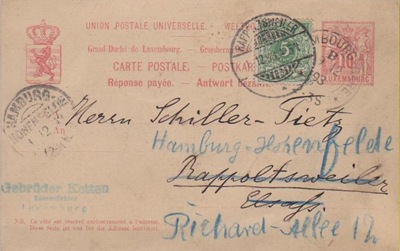 UNION POSTALE UNIVERSELLE. — WELT
Grand-Duché de Luxembourg. — Grossherzog
CARTE POSTALE. — POSTKAR
Réponse payée. — Antwort bezahlt
RAPPOLTSWEILER
5
10
LUXEMBOURG
HAMBURG
HOHENFELDE
12
An
Herrn Schiller-Tietz
Hamburg-Hohenfelde
Rappoltsweiler
Elsass.
Richard-Allee 12
Gebrüder Ketten
Luxemburg
N.B. Ce côté est réservé exclusivement à l'adresse.
Diese Seite ist nur für die Adresse bestimmt.